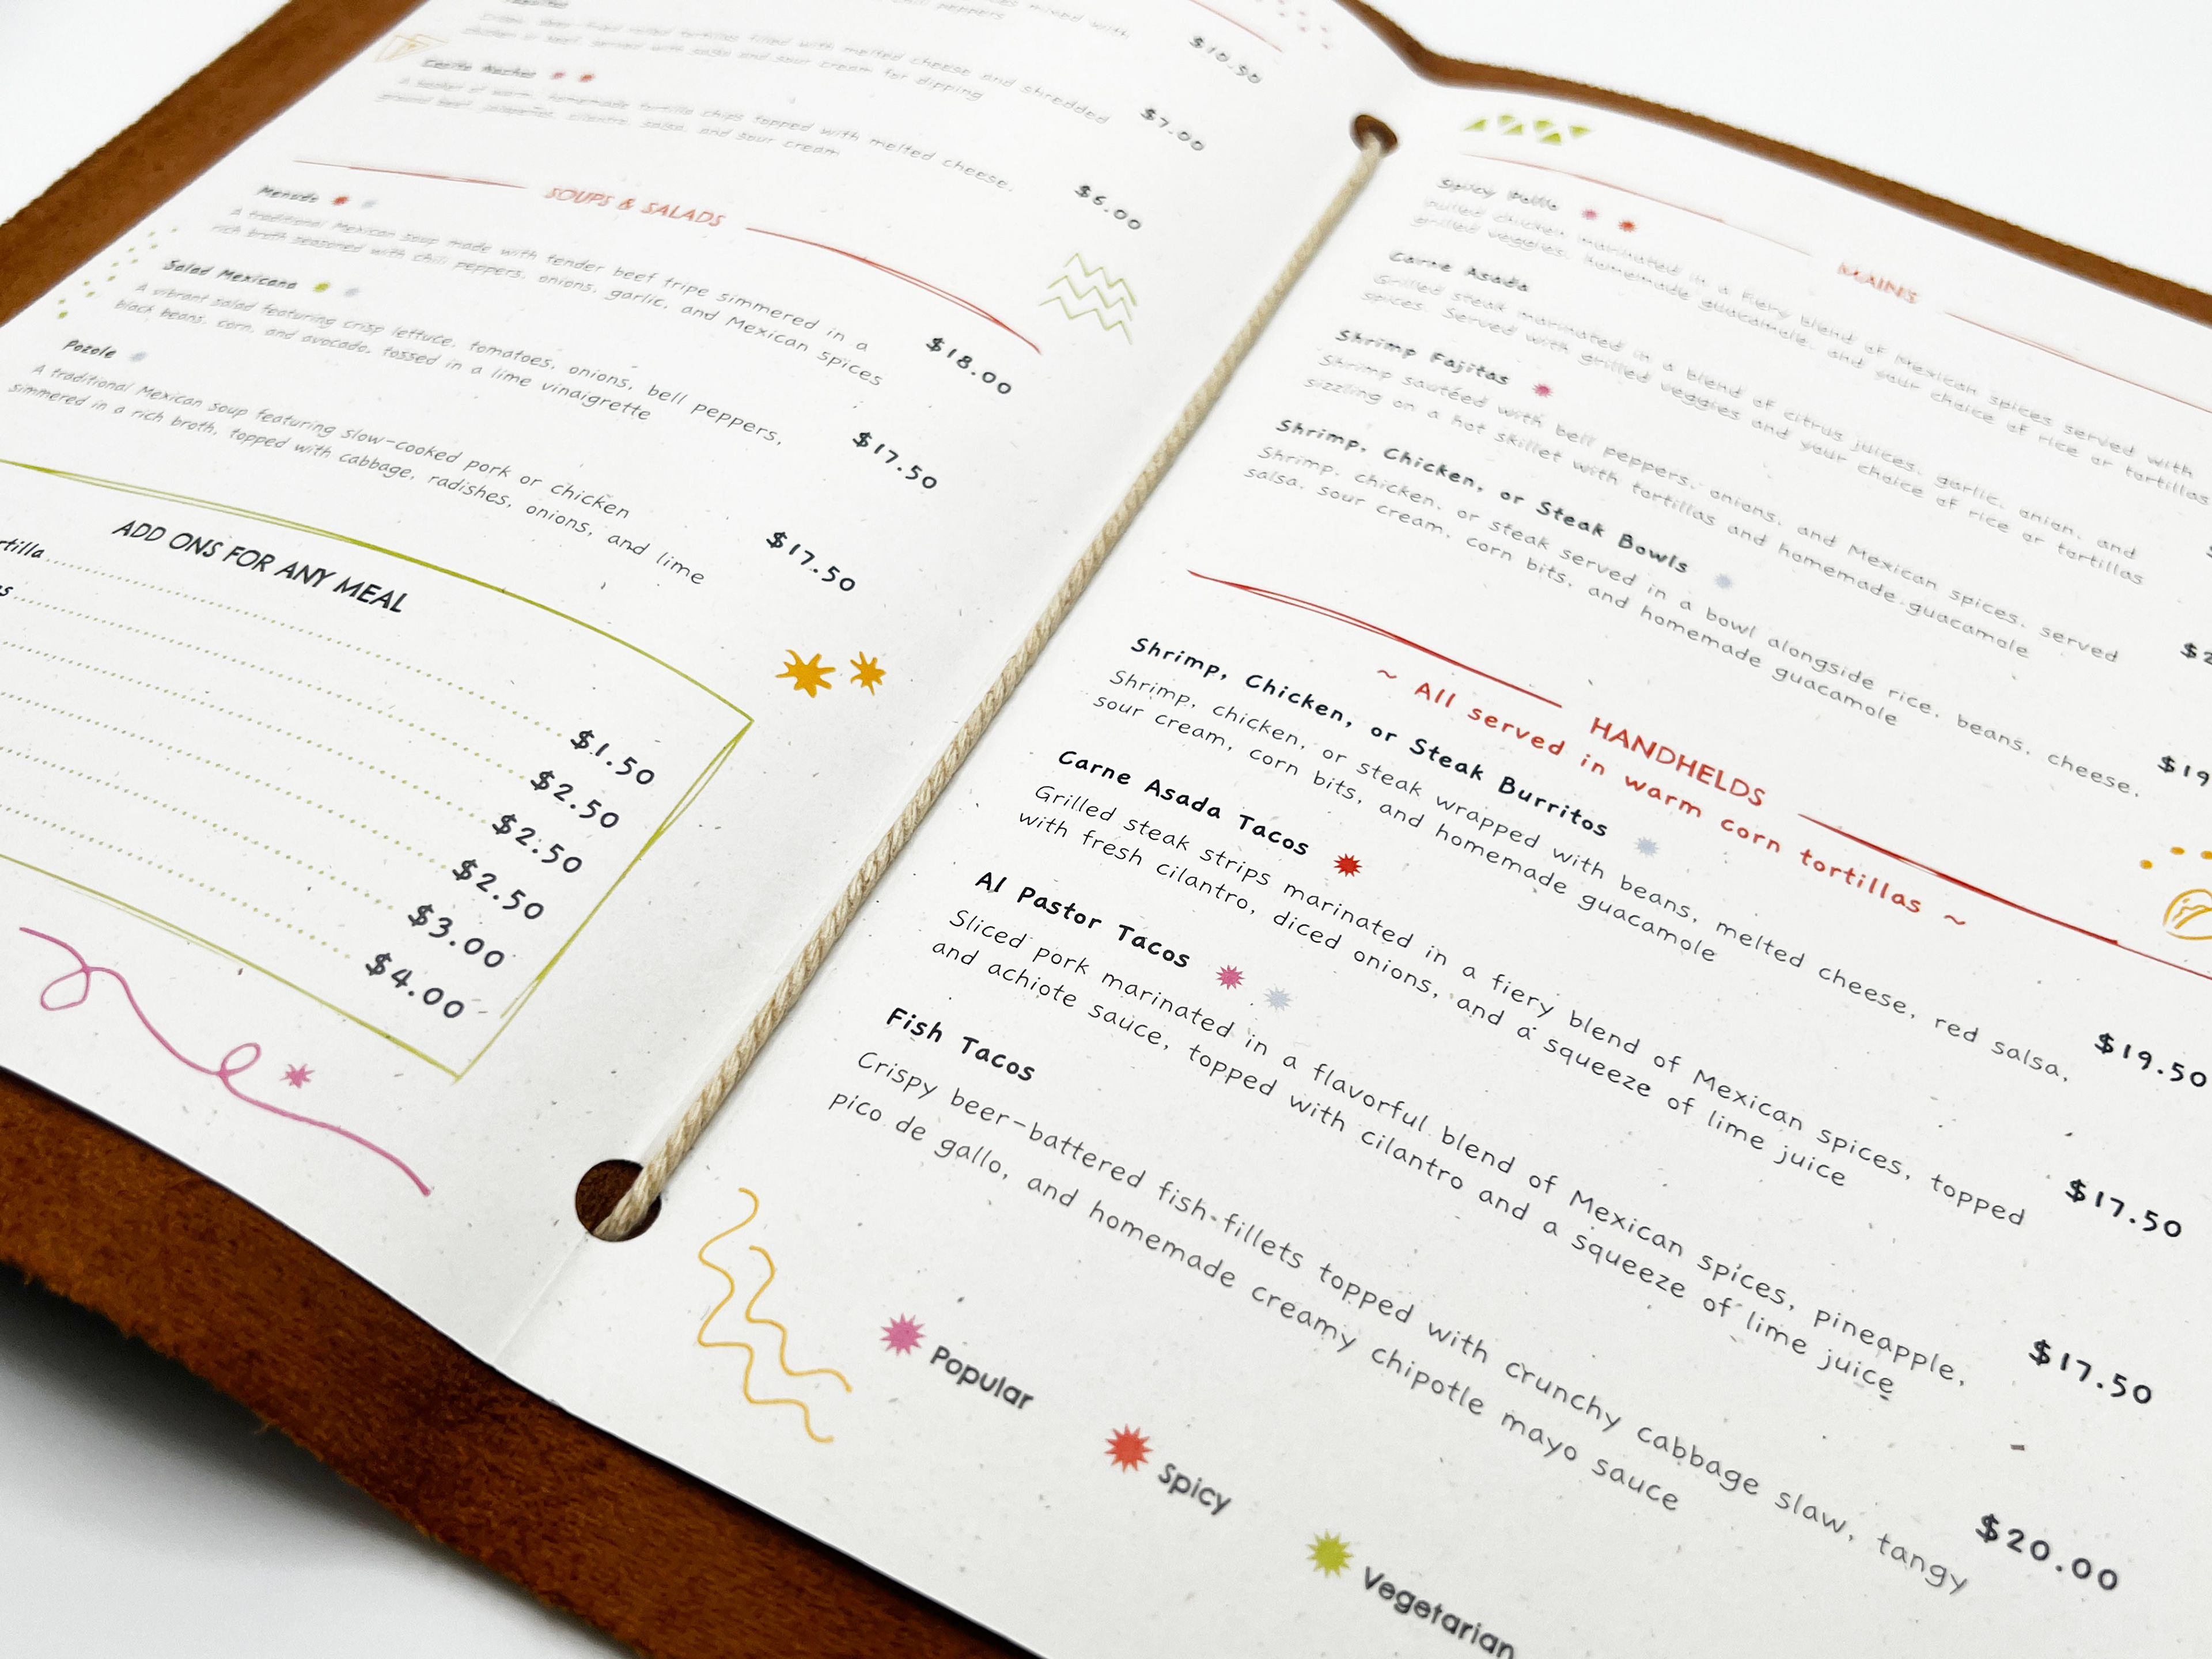 with
chili peppers
$10.50
filled with melted cheese and shredded
served with salsa and sour cream for dipping
$7.00
Nachos
homemade tortilla chips topped with melted cheese,
ground beef, jalapeños, cilantro, salsa, and sour cream
$6.00
SOUPS & SALADS
Menudo
A traditional Mexican soup made with tender beef tripe simmered in a
rich broth seasoned with chili peppers, onions, garlic, and Mexican spices
$18.00
Salad Mexicana
A vibrant salad featuring crisp lettuce, tomatoes, onions, bell peppers,
black beans, corn, and avocado, tossed in a lime vinaigrette
$17.50
Pozole
A traditional Mexican soup featuring slow-cooked pork or chicken
simmered in a rich broth, topped with cabbage, radishes, onions, and lime
$17.50
ADD ONS FOR ANY MEAL
rtilla
$1.50
s
$2.50
$2.50
$2.50
$3.00
$4.00
MAINS
Spicy Pollo
Pulled chicken marinated in a fiery blend of Mexican spices served with
grilled veggies, homemade guacamole, and your choice of rice or tortillas
Carne Asada
Grilled steak marinated in a blend of citrus juices, garlic, onion, and
spices. Served with grilled veggies and your choice of rice or tortillas
Shrimp Fajitas
Shrimp sautéed with bell peppers, onions, and Mexican spices, served
sizzling on a hot skillet with tortillas and homemade guacamole
$2
Shrimp, Chicken, or Steak Bowls
Shrimp, chicken, or steak served in a bowl alongside rice, beans, cheese,
salsa, sour cream, corn bits, and homemade guacamole
$19
HANDHELDS
~ All served in warm corn tortillas ~
Shrimp, Chicken, or Steak Burritos
Shrimp, chicken, or steak wrapped with beans, melted cheese, red salsa,
sour cream, corn bits, and homemade guacamole
$19.50
Carne Asada Tacos
Grilled steak strips marinated in a fiery blend of Mexican spices, topped
with fresh cilantro, diced onions, and a squeeze of lime juice
$17.50
Al Pastor Tacos
Sliced pork marinated in a flavorful blend of Mexican spices, pineapple,
and achiote sauce, topped with cilantro and a squeeze of lime juice
$17.50
Fish Tacos
Crispy beer-battered fish-fillets topped with crunchy cabbage slaw, tangy
pico de gallo, and homemade creamy chipotle mayo sauce
$20.00
Popular
Spicy
Vegetarian